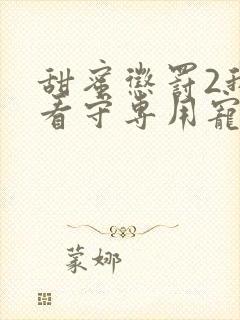 甜蜜懲罰2我
看守專用寵
蒙娜